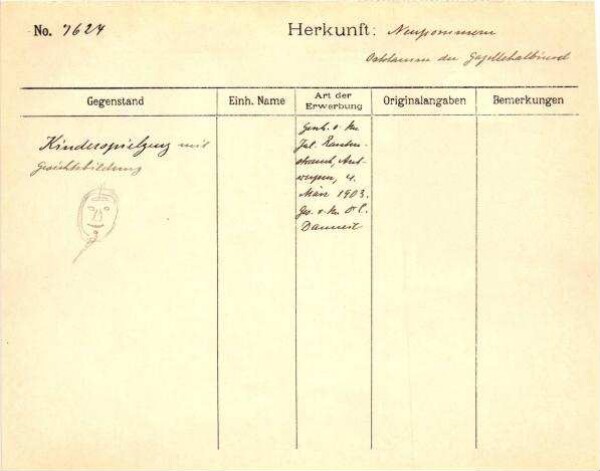 No. 7624
Herkunft: Neupommern
der Gazellehalbinsel
Gegenstand
Einh. Name
Art der Erwerbung
Originalangaben
Bemerkungen
Kinderspielzeug mit
Gesichtsbildung
Gesch. v. Hn.
Jul. Rauten-
strauch, Ant-
werpen, 4.
März 1903.
Ges. v. Hn O. C.
Dannert